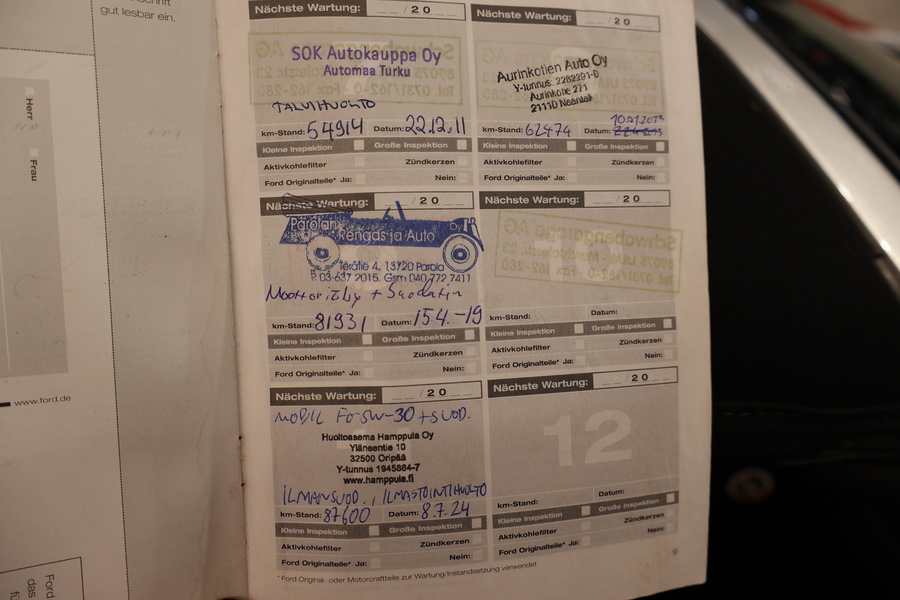 gut lesbar ein.
Herr
Frau
www.ford.de
Nächste Wartung: __/20__
SOK Autokauppa Oy
Automaa Turku
TALVIHUOLTO
km-Stand: 54914 Datum: 22.12.11
Kleine Inspektion Große Inspektion
Aktivkohlefilter Zündkerzen
Ford Originalteile* Ja: Nein:
Nächste Wartung: __/20__
Aurinkotien Auto Oy
Y-tunnus: 2262291-0
Aurinkotie 271
21110 Naantali
km-Stand: 62474 Datum:
Kleine Inspektion Große Inspektion
Aktivkohlefilter Zündkerzen
Ford Originalteile* Ja: Nein:
Nächste Wartung: __/20__
Parolan Rengas ja Auto Oy
Terätie 4, 13720 Parola
P. 03-637 2015, Gsm 040 772 7411
Moottoriöljy + Suodatin
km-Stand: 81931 Datum: 15.4.-19
Kleine Inspektion Große Inspektion
Aktivkohlefilter Zündkerzen
Ford Originalteile* Ja: Nein:
Nächste Wartung: __/20__
Schwabengarage AG
89075 ULM
km-Stand: Datum:
Kleine Inspektion Große Inspektion
Aktivkohlefilter Zündkerzen
Ford Originalteile* Ja: Nein:
Nächste Wartung: __/20__
MOBIL Fo 5W-30 + SUOD.
Huoltoasema Hamppula Oy
Yläneentie 10
32500 Oripää
Y-tunnus 1945864-7
www.hamppula.fi
ILMANSUOD., ILMASTOINTIHUOLTO
km-Stand: 87600 Datum: 8.7.24
Kleine Inspektion Große Inspektion
Aktivkohlefilter Zündkerzen
Ford Originalteile* Ja: Nein:
Nächste Wartung: __/20__
12
km-Stand: Datum:
Kleine Inspektion Große Inspektion
Aktivkohlefilter Zündkerzen
Ford Originalteile* Ja: Nein:
* Ford Original- oder Motorcraftteile zur Wartung/Instandsetzung verwendet
9
Ford
das